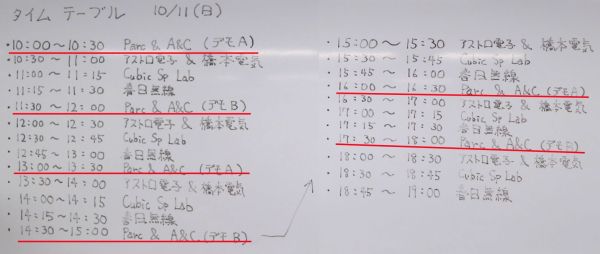 タイム テーブル 10/11(日)
・10:00〜10:30 Parc & A&C (デモA)
・10:30〜11:00 アストロ電子 & 橋本電気
・11:00〜11:15 Cubic Sp Lab
・11:15〜11:30 春日無線
・11:30〜12:00 Parc & A&C (デモB)
・12:00〜12:30 アストロ電子 & 橋本電気
・12:30〜12:45 Cubic Sp Lab
・12:45〜13:00 春日無線
・13:00〜13:30 Parc & A&C (デモA)
・13:30〜14:00 アストロ電子 & 橋本電気
・14:00〜14:15 Cubic Sp Lab
・14:15〜14:30 春日無線
・14:30〜15:00 Parc & A&C (デモB)
・15:00〜15:30 アストロ電子 & 橋本電気
・15:30〜15:45 Cubic Sp Lab
・15:45〜16:00 春日無線
・16:00〜16:30 Parc & A&C (デモA)
・16:30〜17:00 アストロ電子 & 橋本電気
・17:00〜17:15 Cubic Sp Lab
・17:15〜17:30 春日無線
・17:30〜18:00 Parc & A&C (デモB)
・18:00〜18:30 アストロ電子 & 橋本電気
・18:30〜18:45 Cubic Sp Lab
・18:45〜19:00 春日無線